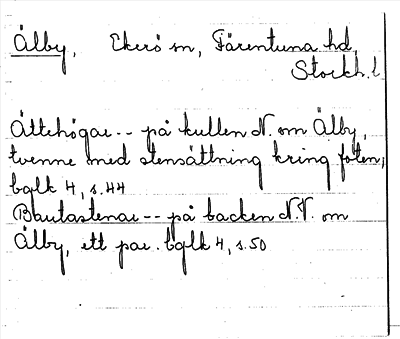 Älby, Ekerö sn, Färentuna hd,
Stockh. l
Ättehögar -- på kullen N. om Älby,
tvenne med stensättning kring foten,
bglk 4, s.44
Bautastenar -- på backen N.V. om
Älby, ett par. bglk 4, s.50